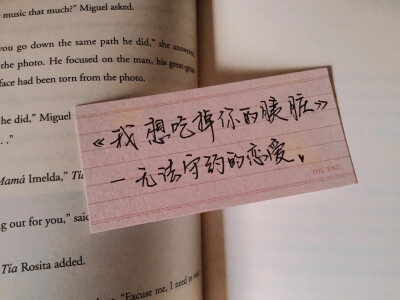 music that much?” Miguel asked.
you go down the same path he did,” she answered
the photo. He focused on the man, his great-great
face had been torn from the photo.
he did,” Miguel
. . .”
Mamá Imelda,” Tía
ng out for you,” said
Tía Rosita added.
“Excuse me, I need to
《我想吃掉你的胰脏》
—无法守约的恋爱。
THE END